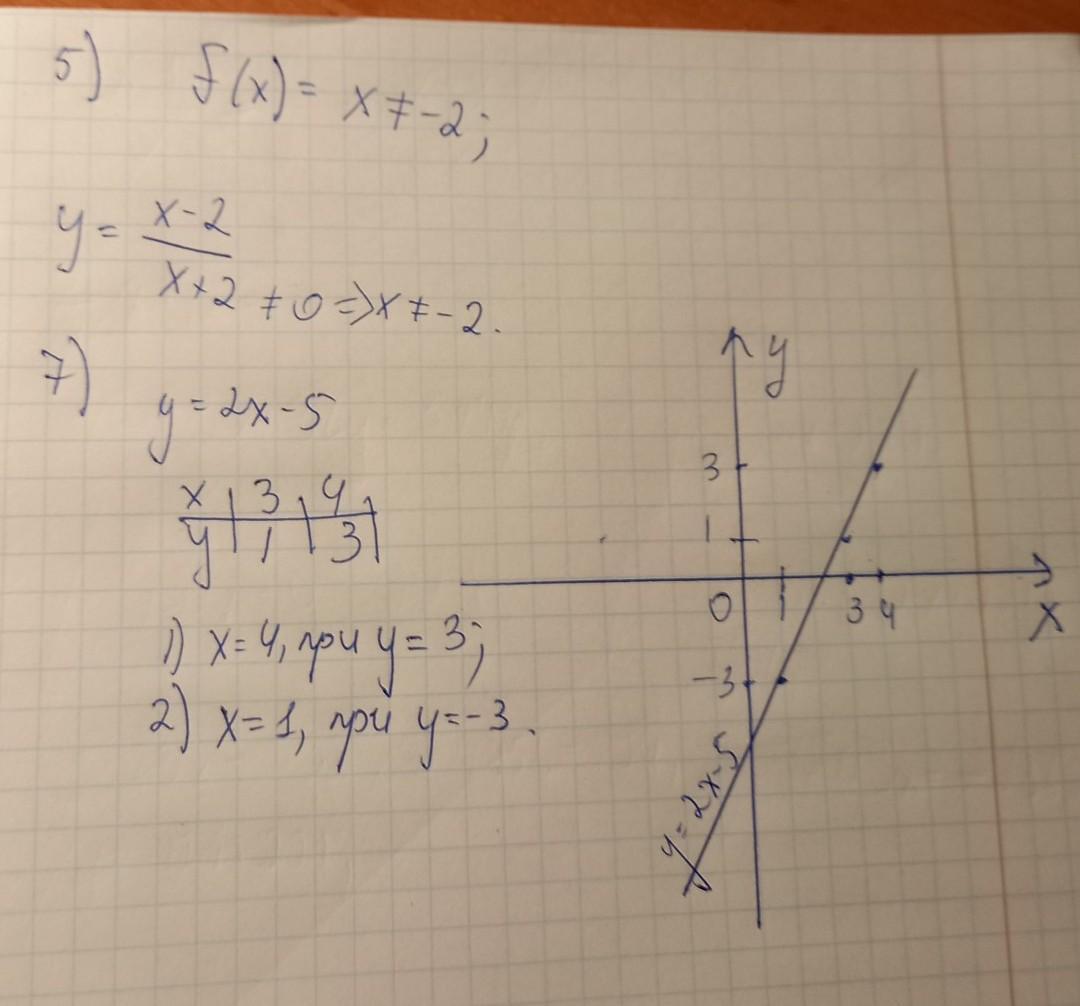 5) f(x) = x ≠ -2;
y = \frac{x-2}{x+2} ≠ 0 => x ≠ -2.
7)
y = 2x - 5
x | 3 | 4 |
y | 1 | 3 |
1) x = 4, при y = 3;
2) x = 1, при y = -3.
y
3
1
0 1 3 4
x
-3
y = 2x - 5